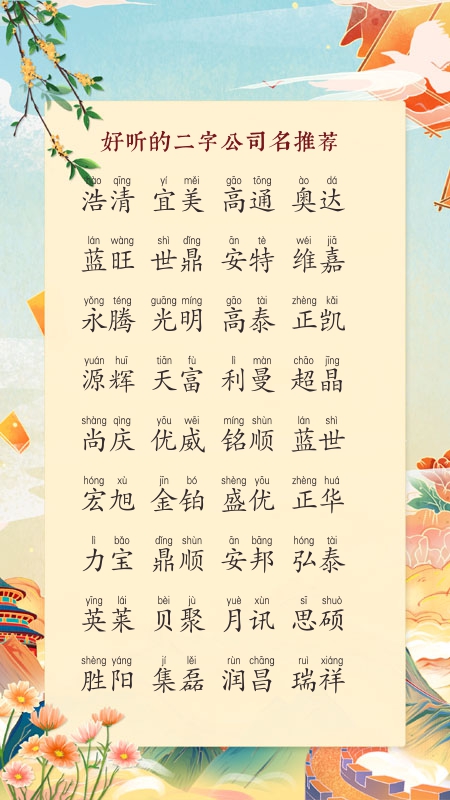 好听的二字公司名推荐
hào qīng yí měi gāo tōng ào dá
浩清 宜美 高通 奥达
lán wàng shì dǐng ān tè wéi jiā
蓝旺 世鼎 安特 维嘉
yǒng téng guāng míng gāo tài zhèng kǎi
永腾 光明 高泰 正凯
yuán huī tiān fù lì màn chāo jīng
源辉 天富 利曼 超晶
shàng qìng yōu wēi míng shùn lán shì
尚庆 优威 铭顺 蓝世
hóng xù jīn bó shèng yōu zhèng huá
宏旭 金铂 盛优 正华
lì bǎo dǐng shùn ān bāng hóng tài
力宝 鼎顺 安邦 弘泰
yīng lái bèi jù yuè xùn sī shuò
英莱 贝聚 月讯 思硕
shèng yáng jí lěi rùn chāng ruì xiáng
胜阳 集磊 润昌 瑞祥